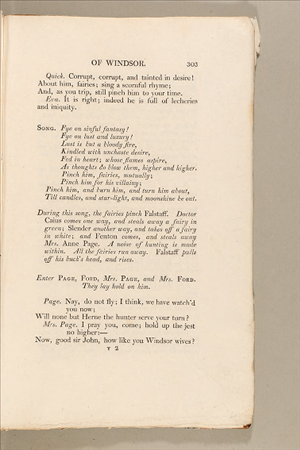 OF WINDSOR. 303
Quick. Corrupt, corrupt, and tainted in desire!
About him, fairies; sing a scornful rhyme;
And, as you trip, still pinch him to your time.
Eva. It is right; indeed he is full of lecheries
and iniquity.
SONG. Fye on sinful fantasy!
Fye on lust and luxury!
Lust is but a bloody fire,
Kindled with unchaste desire,
Fed in heart; whose flames aspire,
As thoughts do blow them, higher and higher.
Pinch him, fairies, mutually;
Pinch him for his villainy;
Pinch him, and burn him, and turn him about,
Till candles, and star-light, and moonshine be out.
During this song, the fairies pinch Falstaff. Doctor
Caius comes one way, and steals away a fairy in
green; Slender another way, and takes off a fairy
in white; and Fenton comes, and steals away
Mrs. Anne Page. A noise of hunting is made
within. All the fairies run away. Falstaff pulls
off his buck's head, and rises.
Enter PAGE, FORD, Mrs. PAGE, and Mrs. FORD.
They lay hold on him.
Page. Nay, do not fly; I think, we have watch'd
you now;
Will none but Herne the hunter serve your turn?
Mrs. Page. I pray you, come; hold up the jest
no higher:—
Now, good sir John, how like you Windsor wives?
T 2